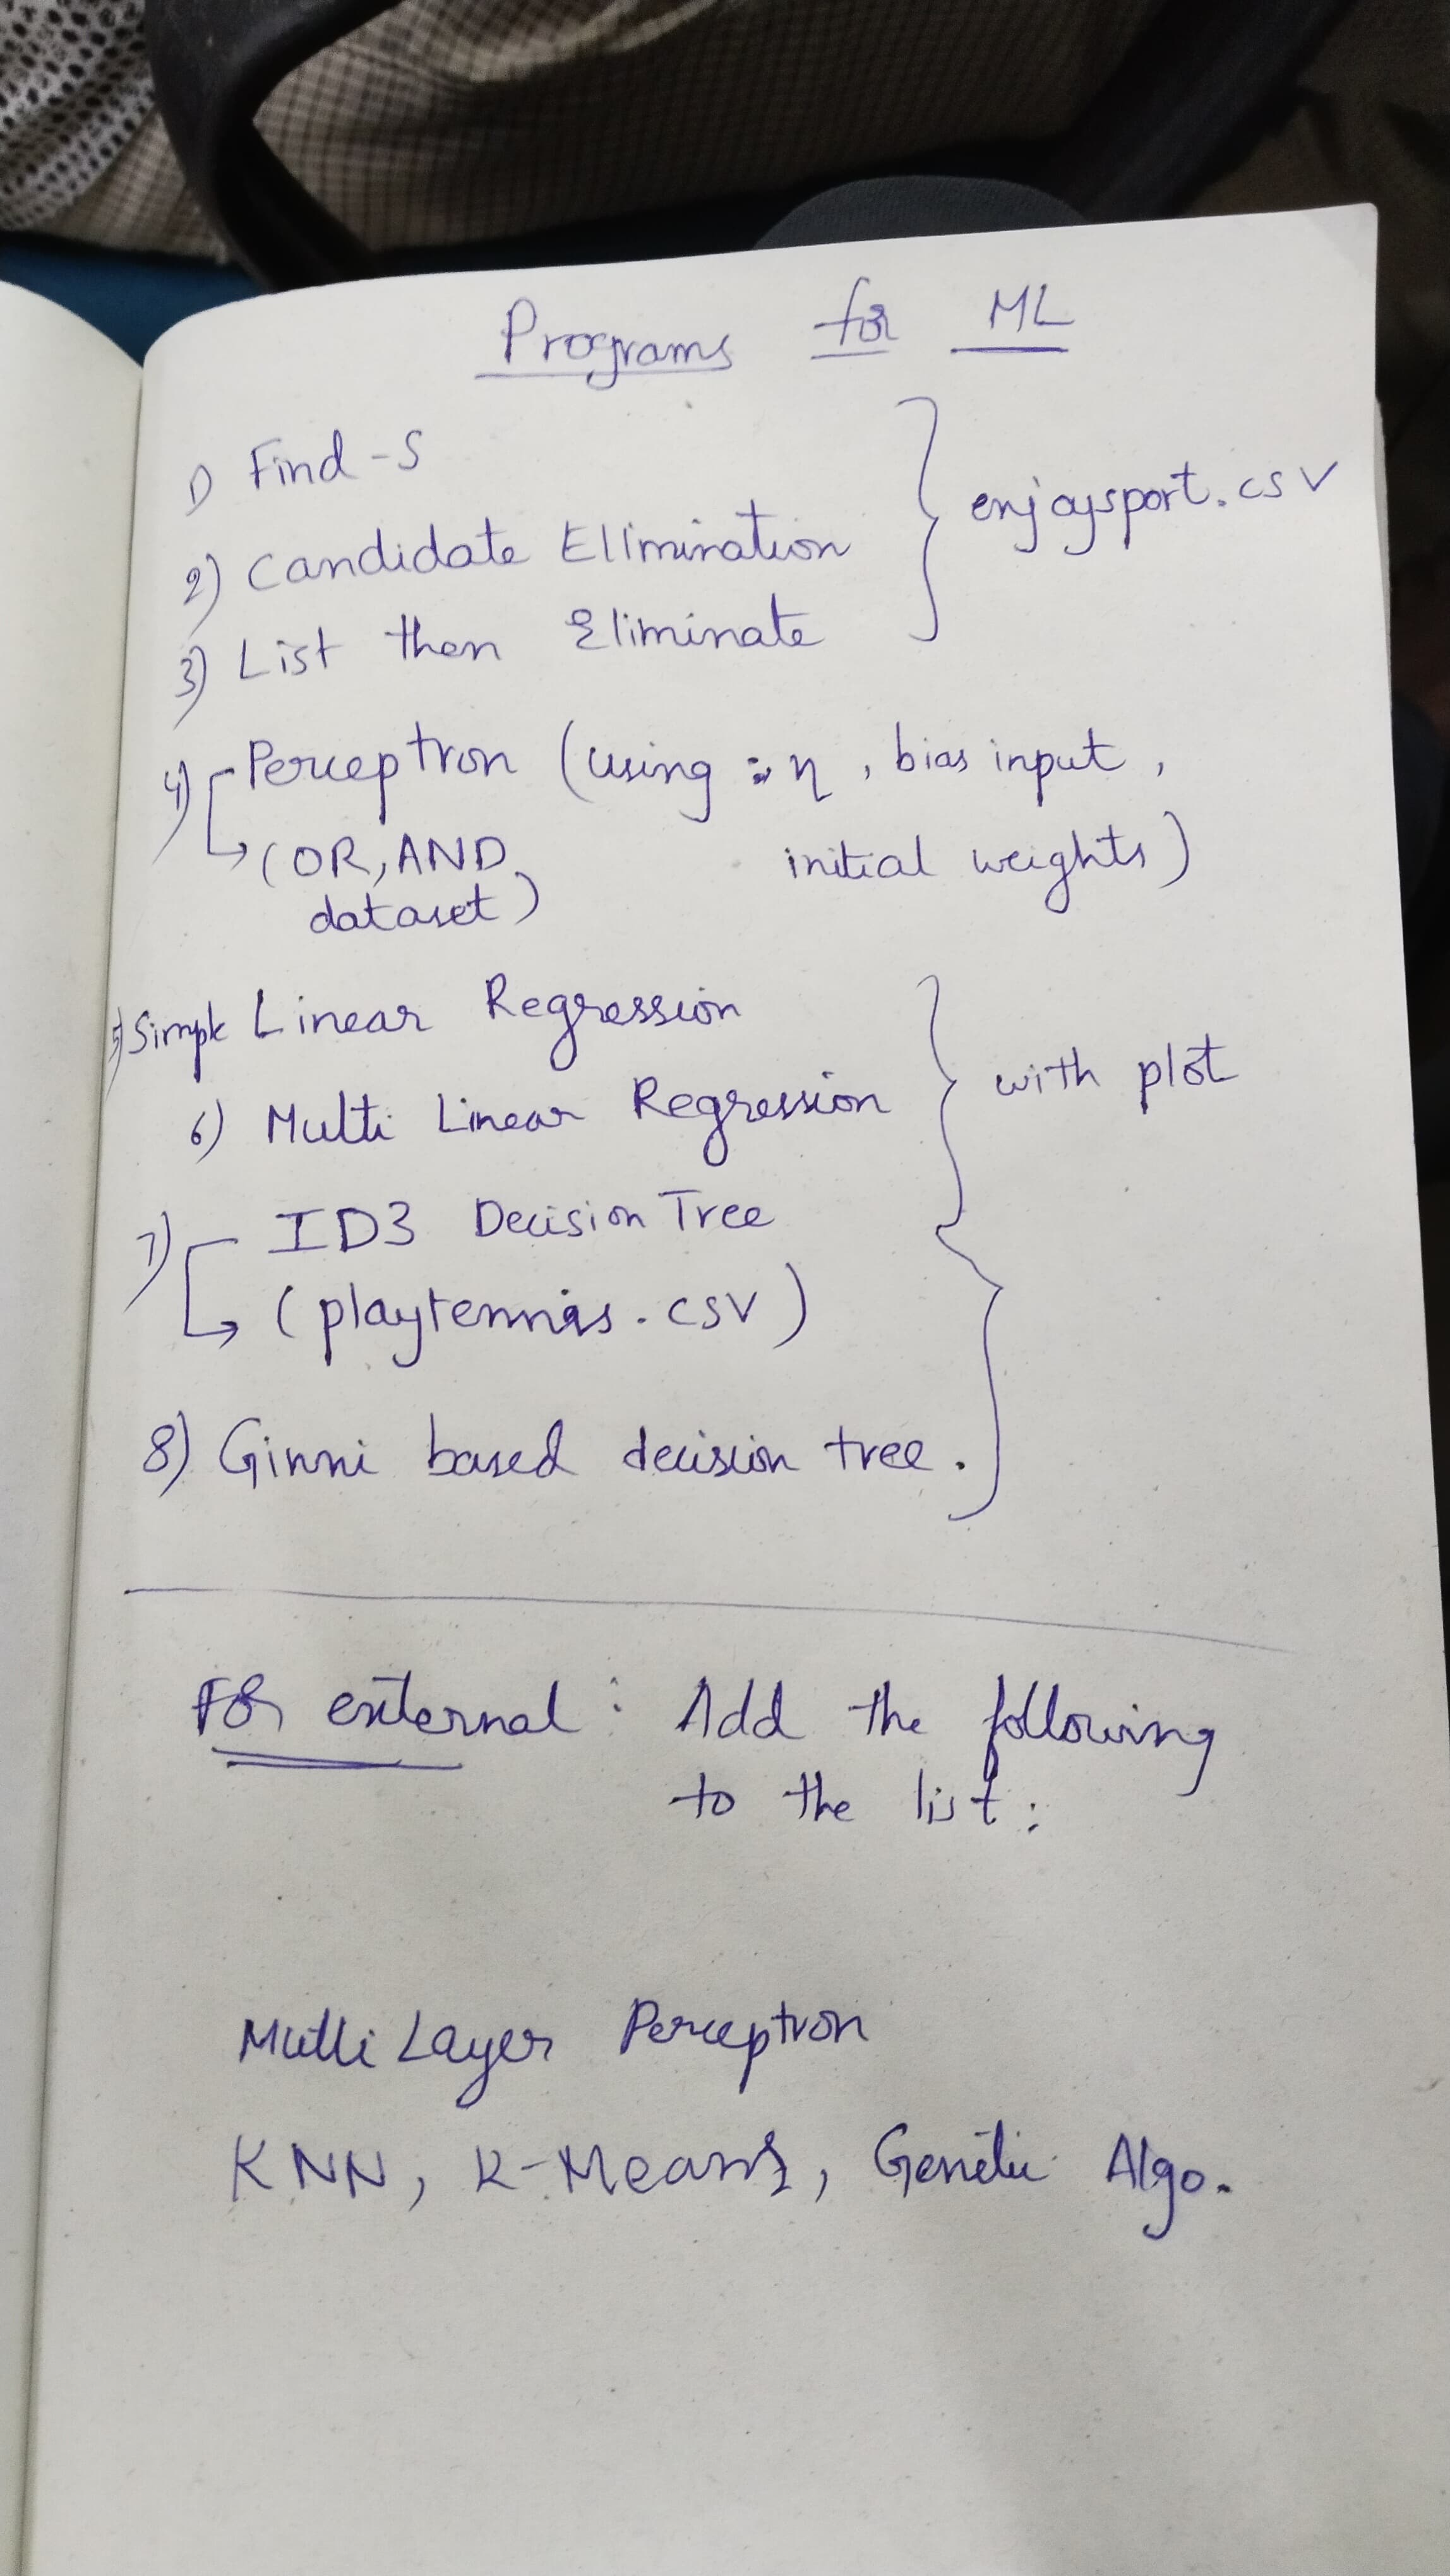 Programs for ML
1) Find-S
2) Candidate Elimination
enjoysport.csv
3) List then Eliminate
4) Perceptron (using : η, bias input,
initial weights)
(OR, AND
dataset)
5) Simple Linear Regression
6) Multi Linear Regression
with plot
7) ID3 Decision Tree
(playtennis.csv)
8) Ginni based decision tree.
For external : Add the following
to the list :
Multi Layer Perceptron
KNN, K-Means, Genetic Algo.